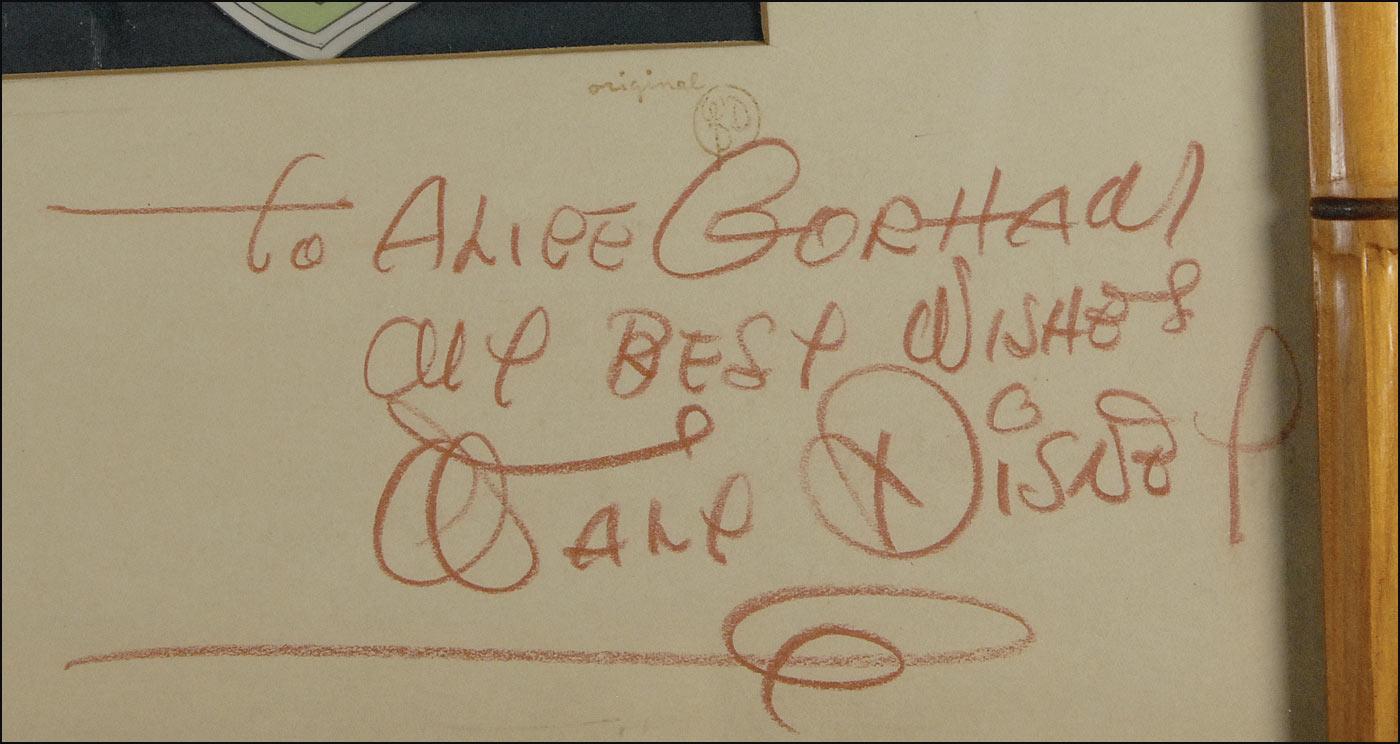 original WD
To ALICE GORHAM
MY BEST WISHES
WALT DISNEY